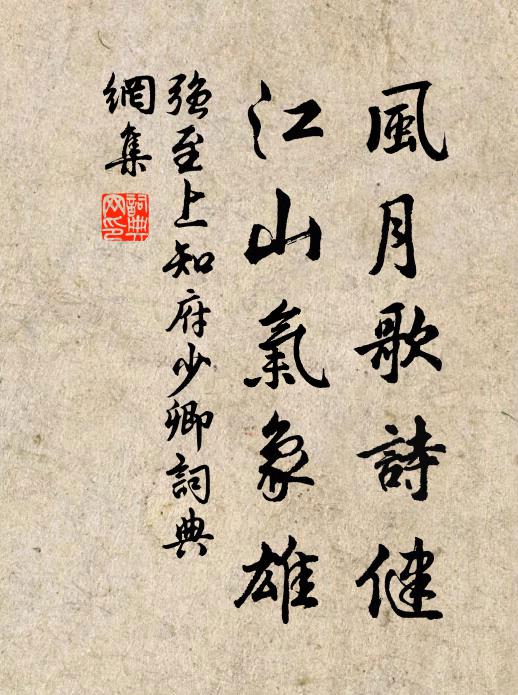 風月歌詩健
江山氣象雄
強至上知府少卿詞典
網集
詞典
网印